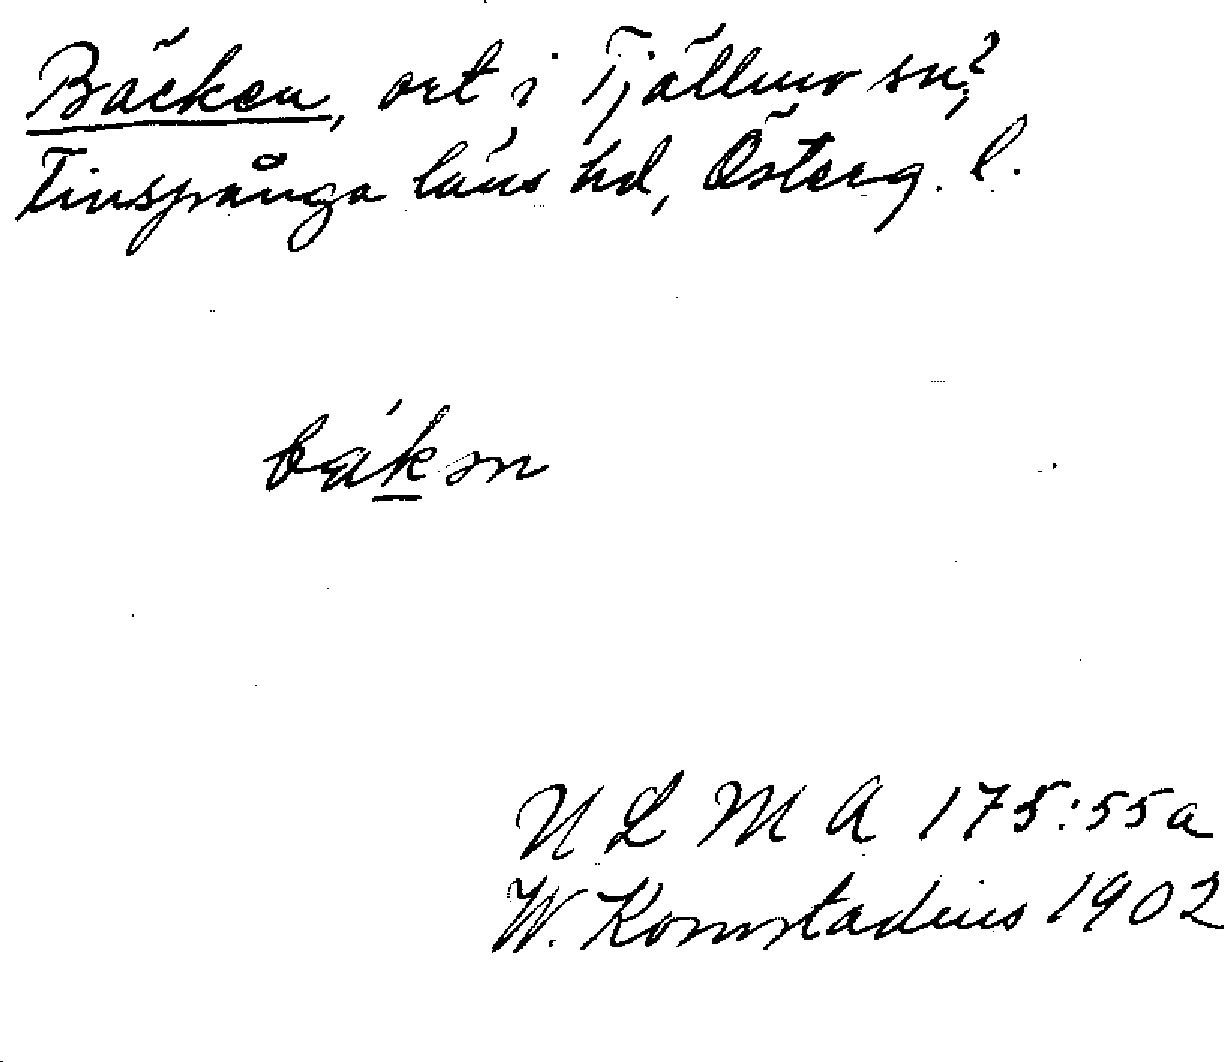 Bäcken, ort i Tjällmo sn?,
Finspånga läns hd, Österg. l.
bäkən
ULMA 175:55a
W. Komstadius 1902